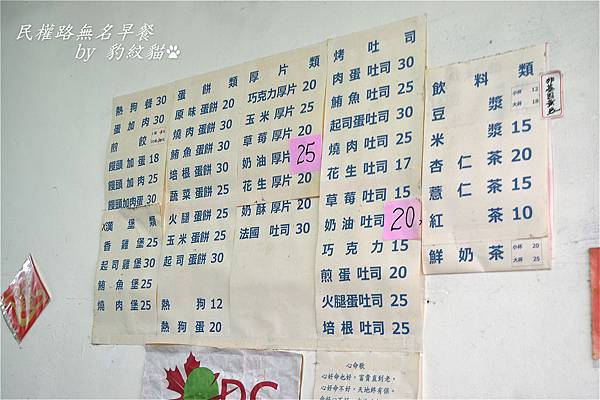 民權路無名早餐
by 豹紋貓
熱狗餐 30
蛋加肉 30
煎餃
饅頭加蛋 18
饅頭加肉 25
饅頭加肉蛋 30
漢堡類
香雞堡 25
起司雞堡 30
鮪魚堡 25
燒肉堡 25
蛋餅類
原味蛋餅 20
燒肉蛋餅 30
鮪魚蛋餅 30
培根蛋餅 30
蔬菜蛋餅 25
火腿蛋餅 25
玉米蛋餅 25
起司蛋餅 30
熱狗 12
熱狗蛋 20
厚片類
巧克力厚片 20
玉米厚片 25
草莓厚片 20
奶油厚片 25
花生厚片 20
奶酥厚片 20
法國厚片 30
烤吐司
肉蛋吐司 30
鮪魚吐司 25
起司蛋吐司 30
燒肉吐司 25
花生吐司 17
草莓吐司 15
奶油吐司 20
巧克力 15
煎蛋吐司 20
火腿蛋吐司 25
培根吐司 25
飲料類
豆漿 小杯 12 大杯 18
米漿 15
杏仁茶 20
薏仁茶 15
紅茶 10
鮮奶茶 小杯 20 大杯 25
非基因黃豆
心命歌
心好命也好，富貴直到老。
心好命不好，天地終有保。